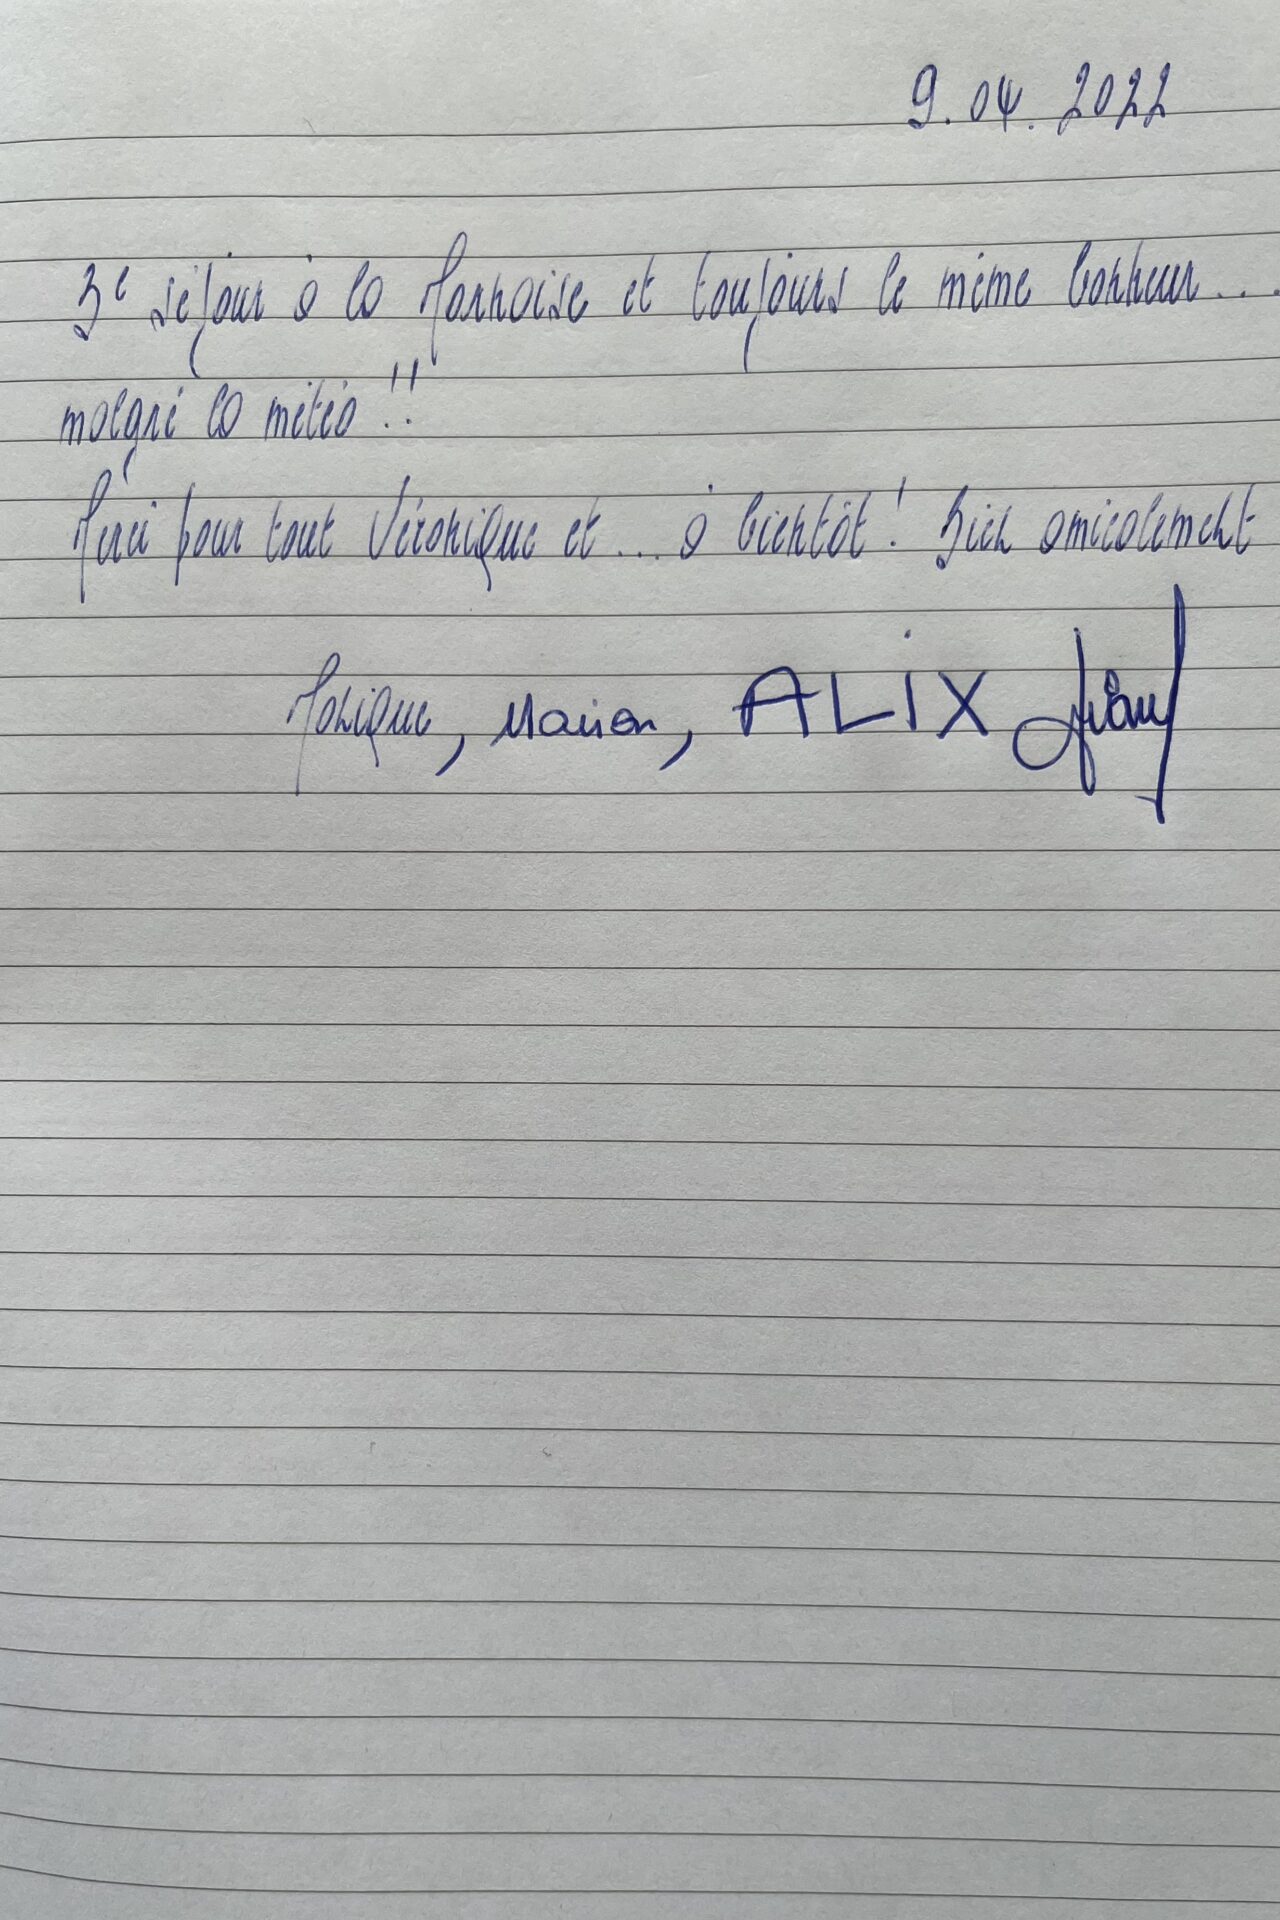 9.04.2022
3e séjour à la Marnoise et toujours le même bonheur...
malgré la météo !!
Merci pour tout Véronique et ... à bientôt ! Bien amicalement
Monique, Marion, ALIX